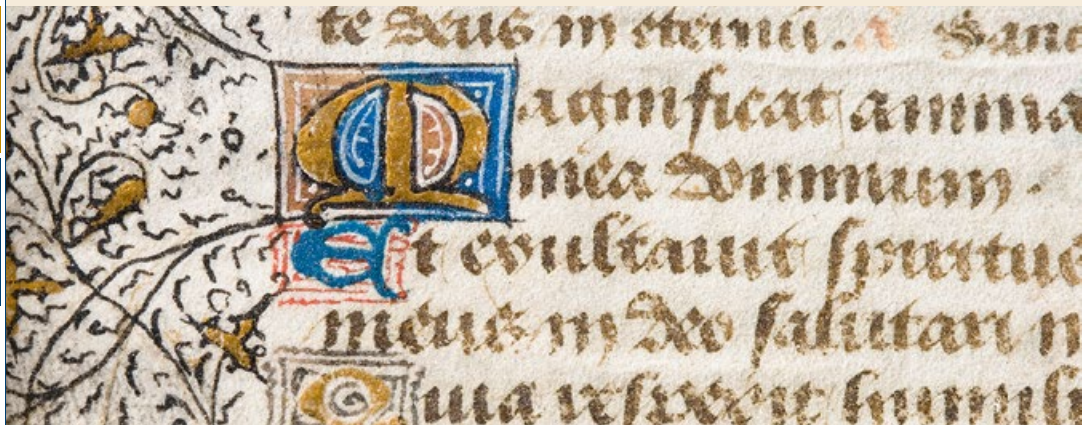 te deus in eternũ. a Sanc
Magnificat anima
mea dominum.
Et exultauit spiritus
meus in deo salutari m
Quia respexit humili